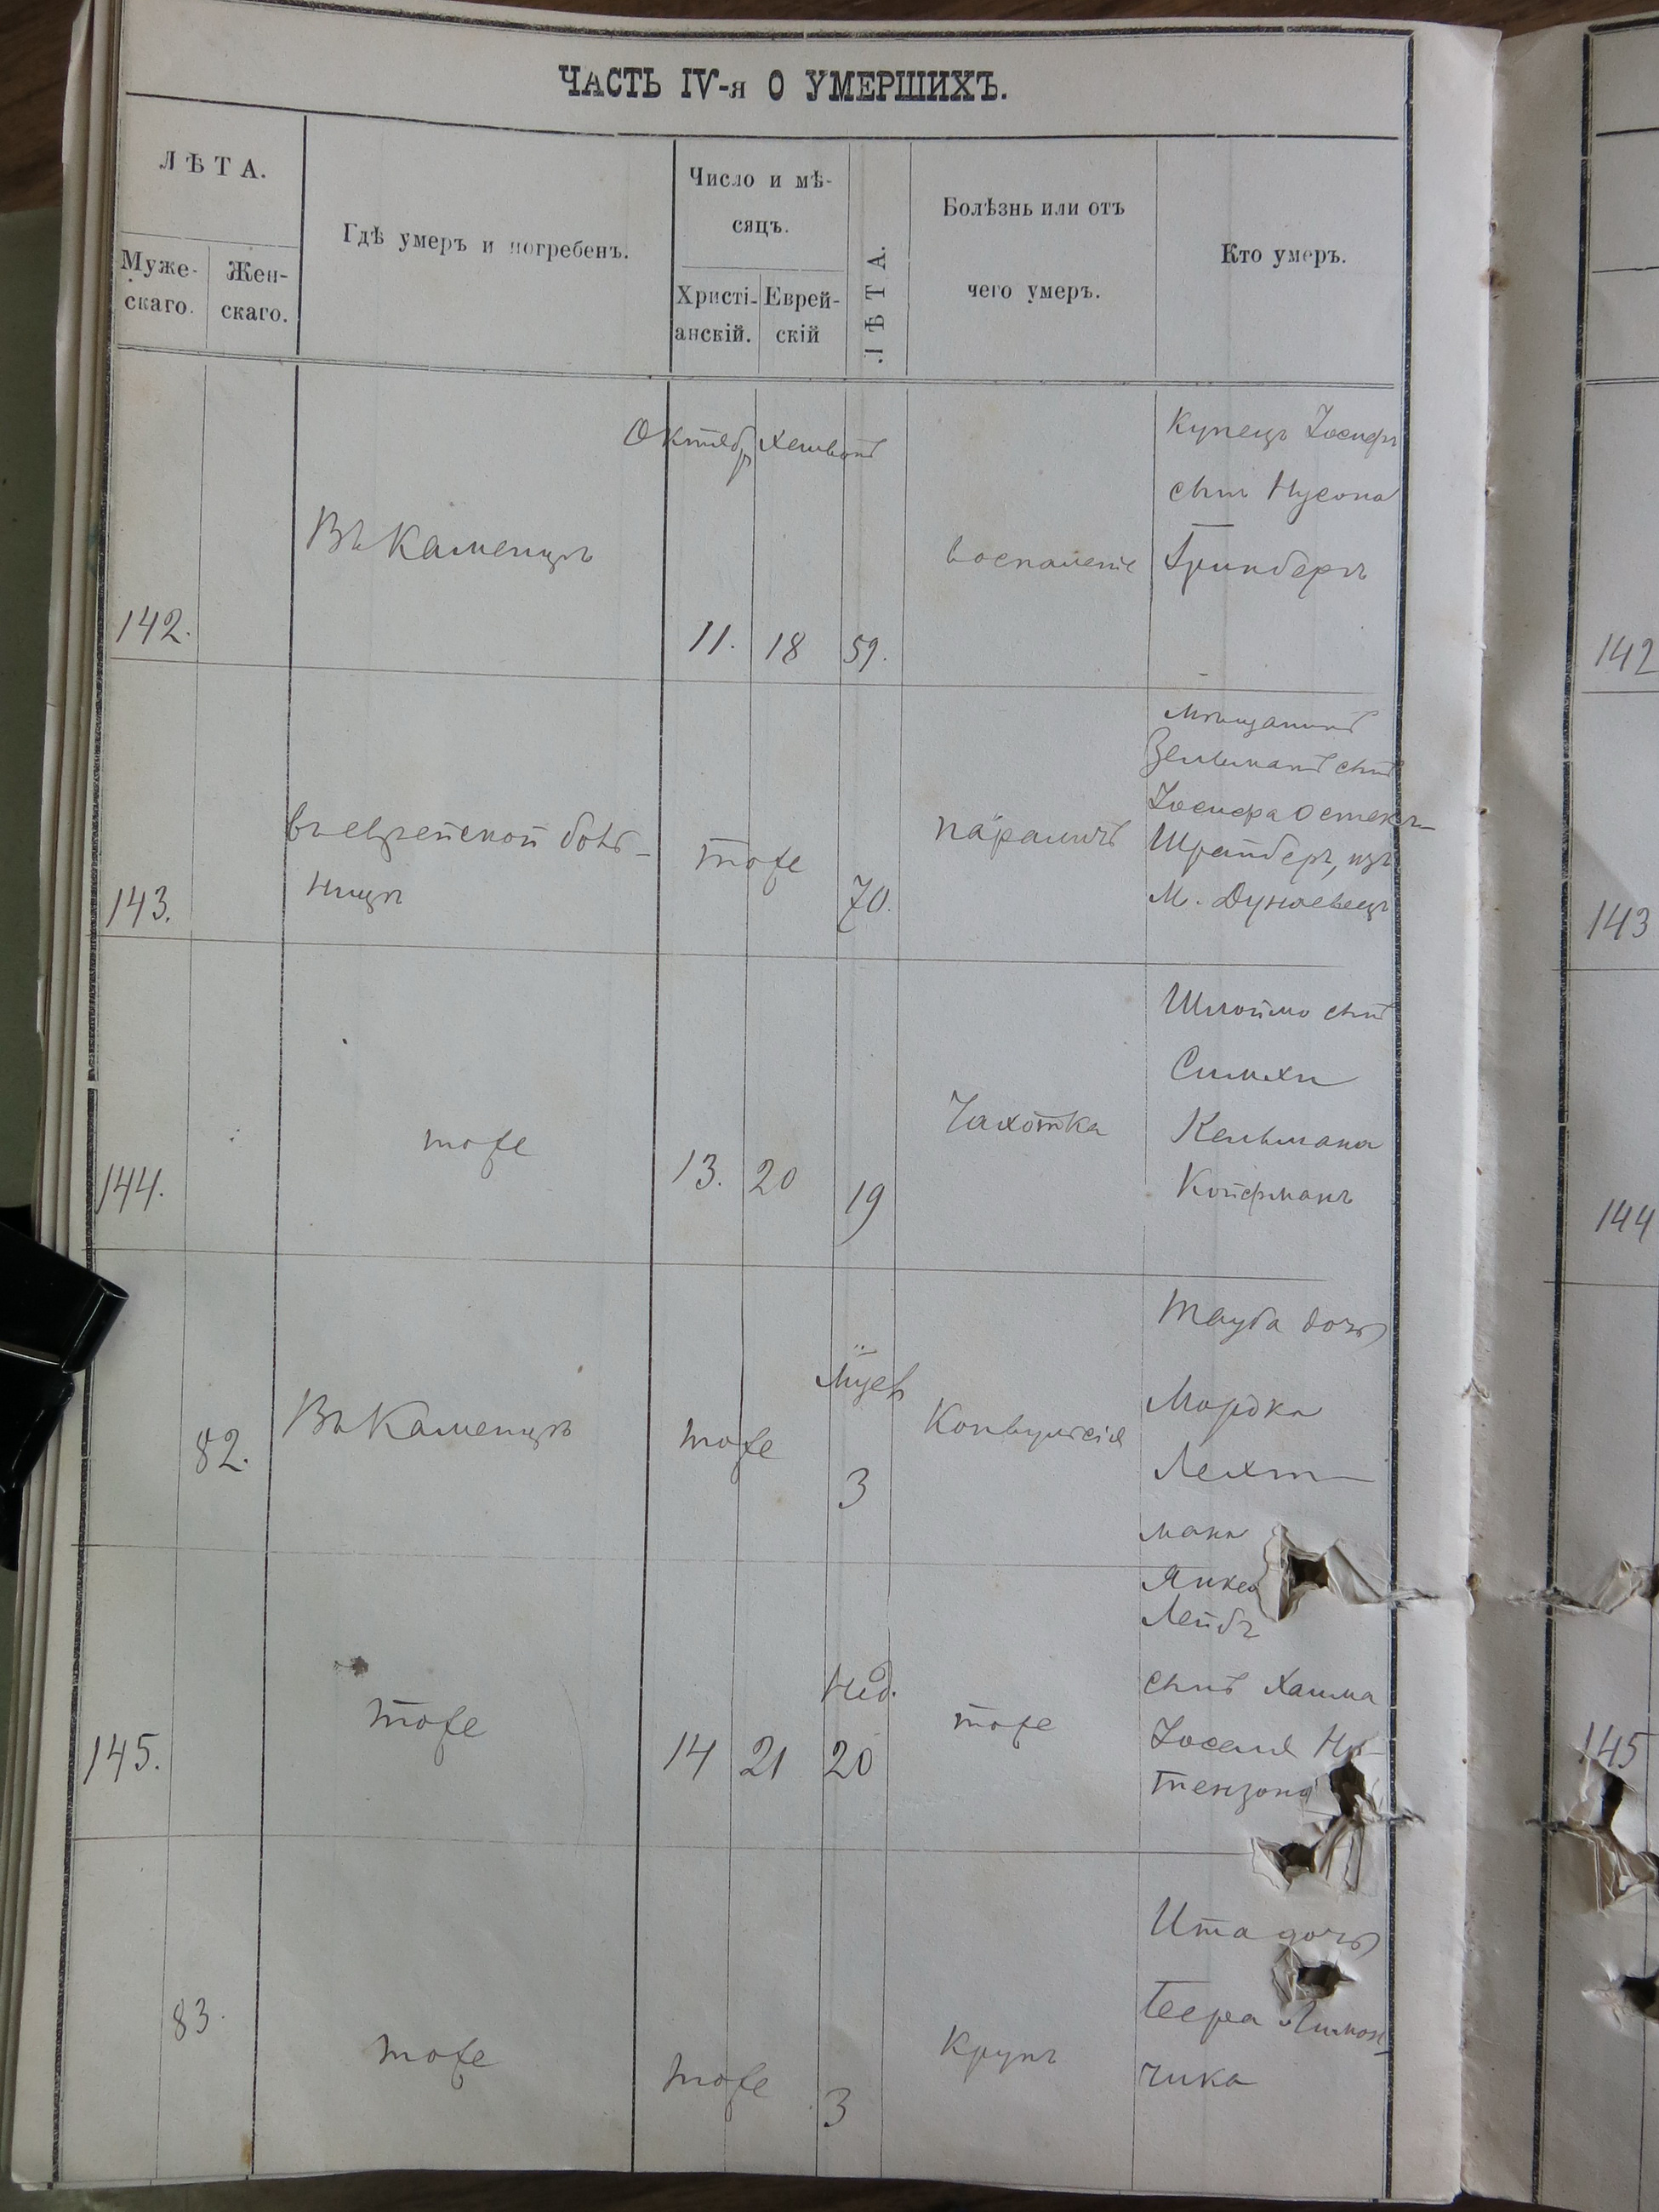 ЧАСТЬ IV-я О УМЕРШИХЪ.
ЛѢТА.
Муже-
скаго.
Жен-
скаго.
Гдѣ умеръ и погребенъ.
Число и мѣ-
сяцъ.
Христі-
анскій.
Еврей-
скій
ЛѢТА.
Болѣзнь или отъ
чего умеръ.
Кто умеръ.
Октябр Хешвонъ
142.
Въ Каменцѣ
11. 18 59.
воспаленіе
Купецъ Іосифъ
сынъ Нусона
Гринбергъ
142
143.
въ еврейской боль-
ницѣ
тоже
70.
параличъ
Мѣщанинъ
Зельманъ сынъ
Іосифа
Шрайберъ, изъ
М. Дунаевецъ
143
144.
тоже
13. 20 19
Чахотка
Шлоймо сынъ
Симхи
Кельмана
Койфманъ
144
82.
Въ Каменцѣ
тоже
3
Конвульсія
Тауба дочь
Мордка
Лехт-
мана
145.
тоже
14 21
Нед.
20
тоже
Янке
Лейбъ
сынъ Хаима
Іоселя
тензона
145
83.
тоже
тоже
3
Крупъ
Ита дочь
Лимон-
чика